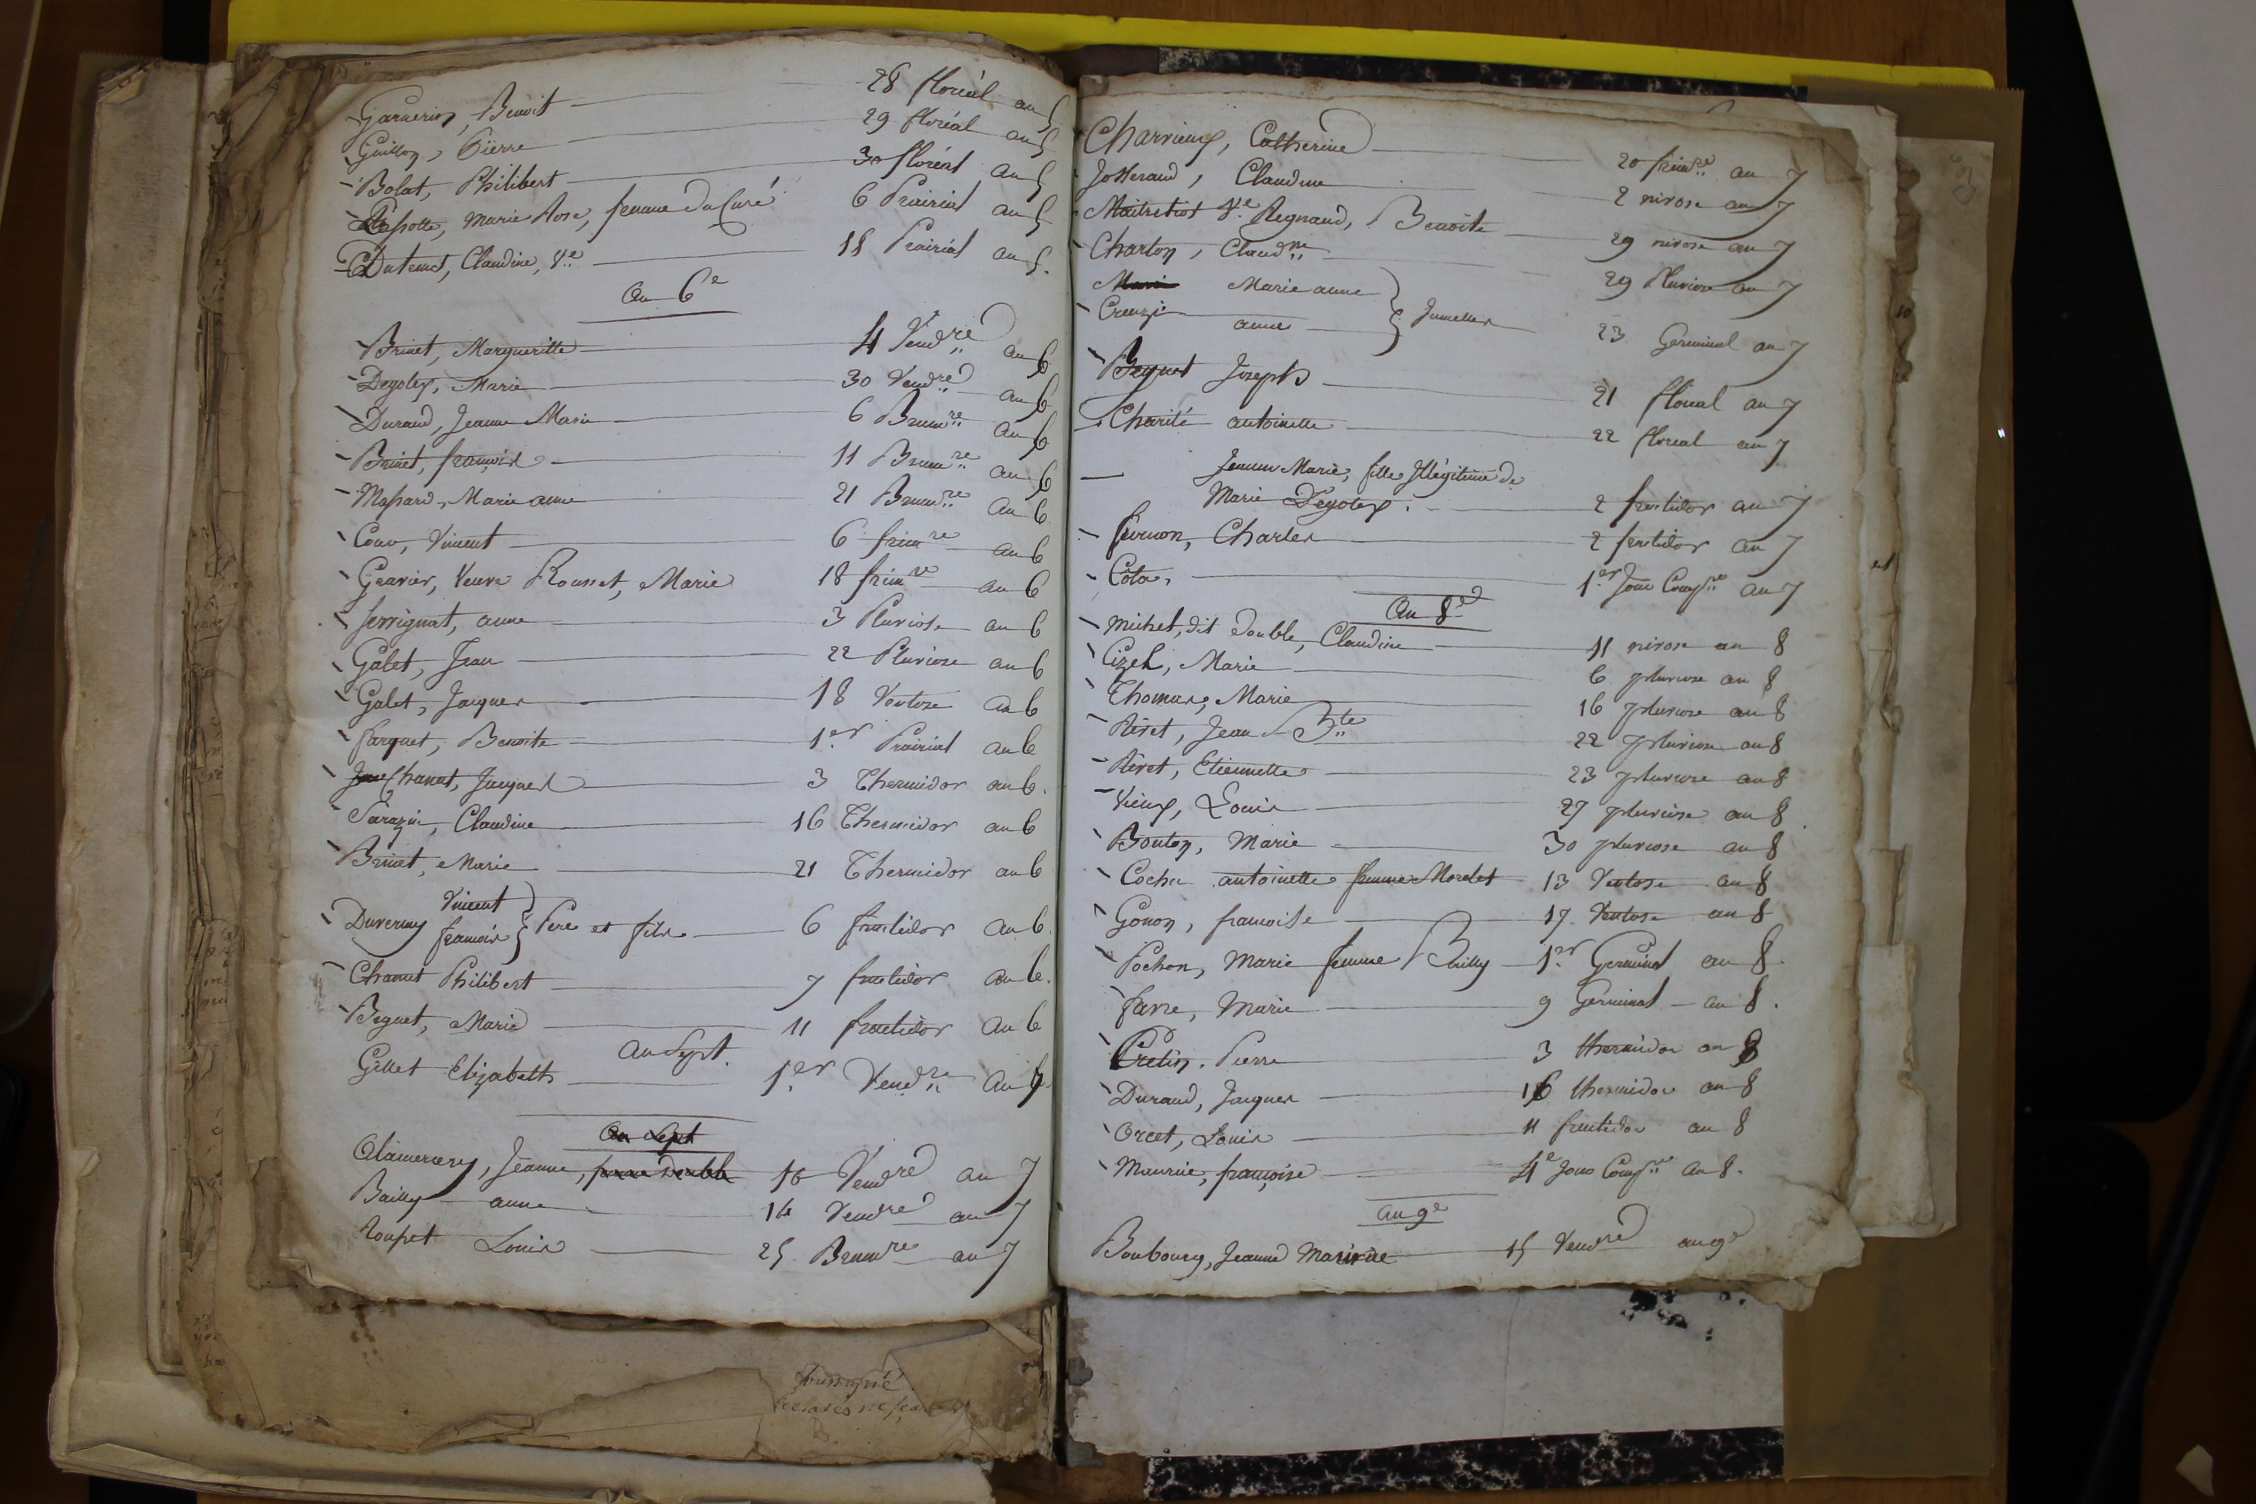 Garnerin, Benoit 28 floréal au 5
Guillon, Pierre 29 floréal au 5
Bolat, Philibert 30 floréal au 5
marie Rose, femme du Curé 6 Prairial au 5
Claudine, Ve 18 Prairial au 5.
au 6e
Brinet, Margueritte 4 Vendre au 6
Degoley, Marie 30 Vendre au 6
Durand, Jeanne Marie 6 Brumre au 6
Brinet, francois 11 Brumre au 6
Massard, Marie anne 21 Brumre au 6
Vincent 6 frimre au 6
Gravier, Veuve Rousset, Marie 18 frimre au 6
Serrignat, anne 3 Pluviose au 6
Galet, Jean 22 Pluviose au 6
Galet, Jacques 18 Ventose au 6
farguet, Benoite 1er Prairial au 6
Chanut, Jacques 3 Thermidor au 6.
Sarazin, Claudine 16 Thermidor au 6
Brinet, Marie 21 Thermidor au 6
Vincent
Duvernay francois } Pere et fils 6 fructidor au 6.
Chanut Philibert 7 fructidor au 6.
Beguet, Marie 11 fructidor au 6
au Sept.
Gillet Elizabeth 1er Vendre au 7
au Sept
Jeanne, femme Double Vendre au 7
Bailly anne 14 Vendre au 7
Louis 25 Brumre au 7
Charvieux, Catherine 20 frimre au 7
Josserand, Claudine 2 nivose au 7
Maitretiot Ve Regnaud, Benoite 29 nivose au 7
Charton, Claudne 29 Pluviose au 7
Marie anne
Creuze anne } Jumelles 23 Germinal au 7
Beguet Joseph 21 floreal au 7
Charité antoinette 22 floreal au 7
Jeanne Marie, fille Illégitime de
Marie Degoley. 2 fructidor au 7
furnon, Charles 2 fructidor au 7
Cota, 1er Jour Compre au 7
au 8e
michet, dit Double, Claudine 11 nivose au 8
Cizel, Marie 6 pluviose au 8
Thomas, Marie 16 pluviose au 8
Réret, Jean Bte 22 pluviose au 8
Réret, Etiennette 23 pluviose au 8
Vieux, Louis 27 pluviose au 8
Bouton, Marie 30 pluviose au 8
Cochu antoinette femme Morelet 13 Ventose au 8
Gonon, francoise 17 Ventose au 8
Pochon, Marie femme Builly 1er Germinal au 8.
favre, Marie 9 Germinal au 8.
Cretin. Pierre 3 thermidor au 8
Durand, Jacques 16 thermidor au 8
Orcet, Louis 11 fructidor au 8
Maurice, françoise 4e Jour Compre au 8.
au 9e
Boubourg, Jeanne Marie 15 Vendre au 9e